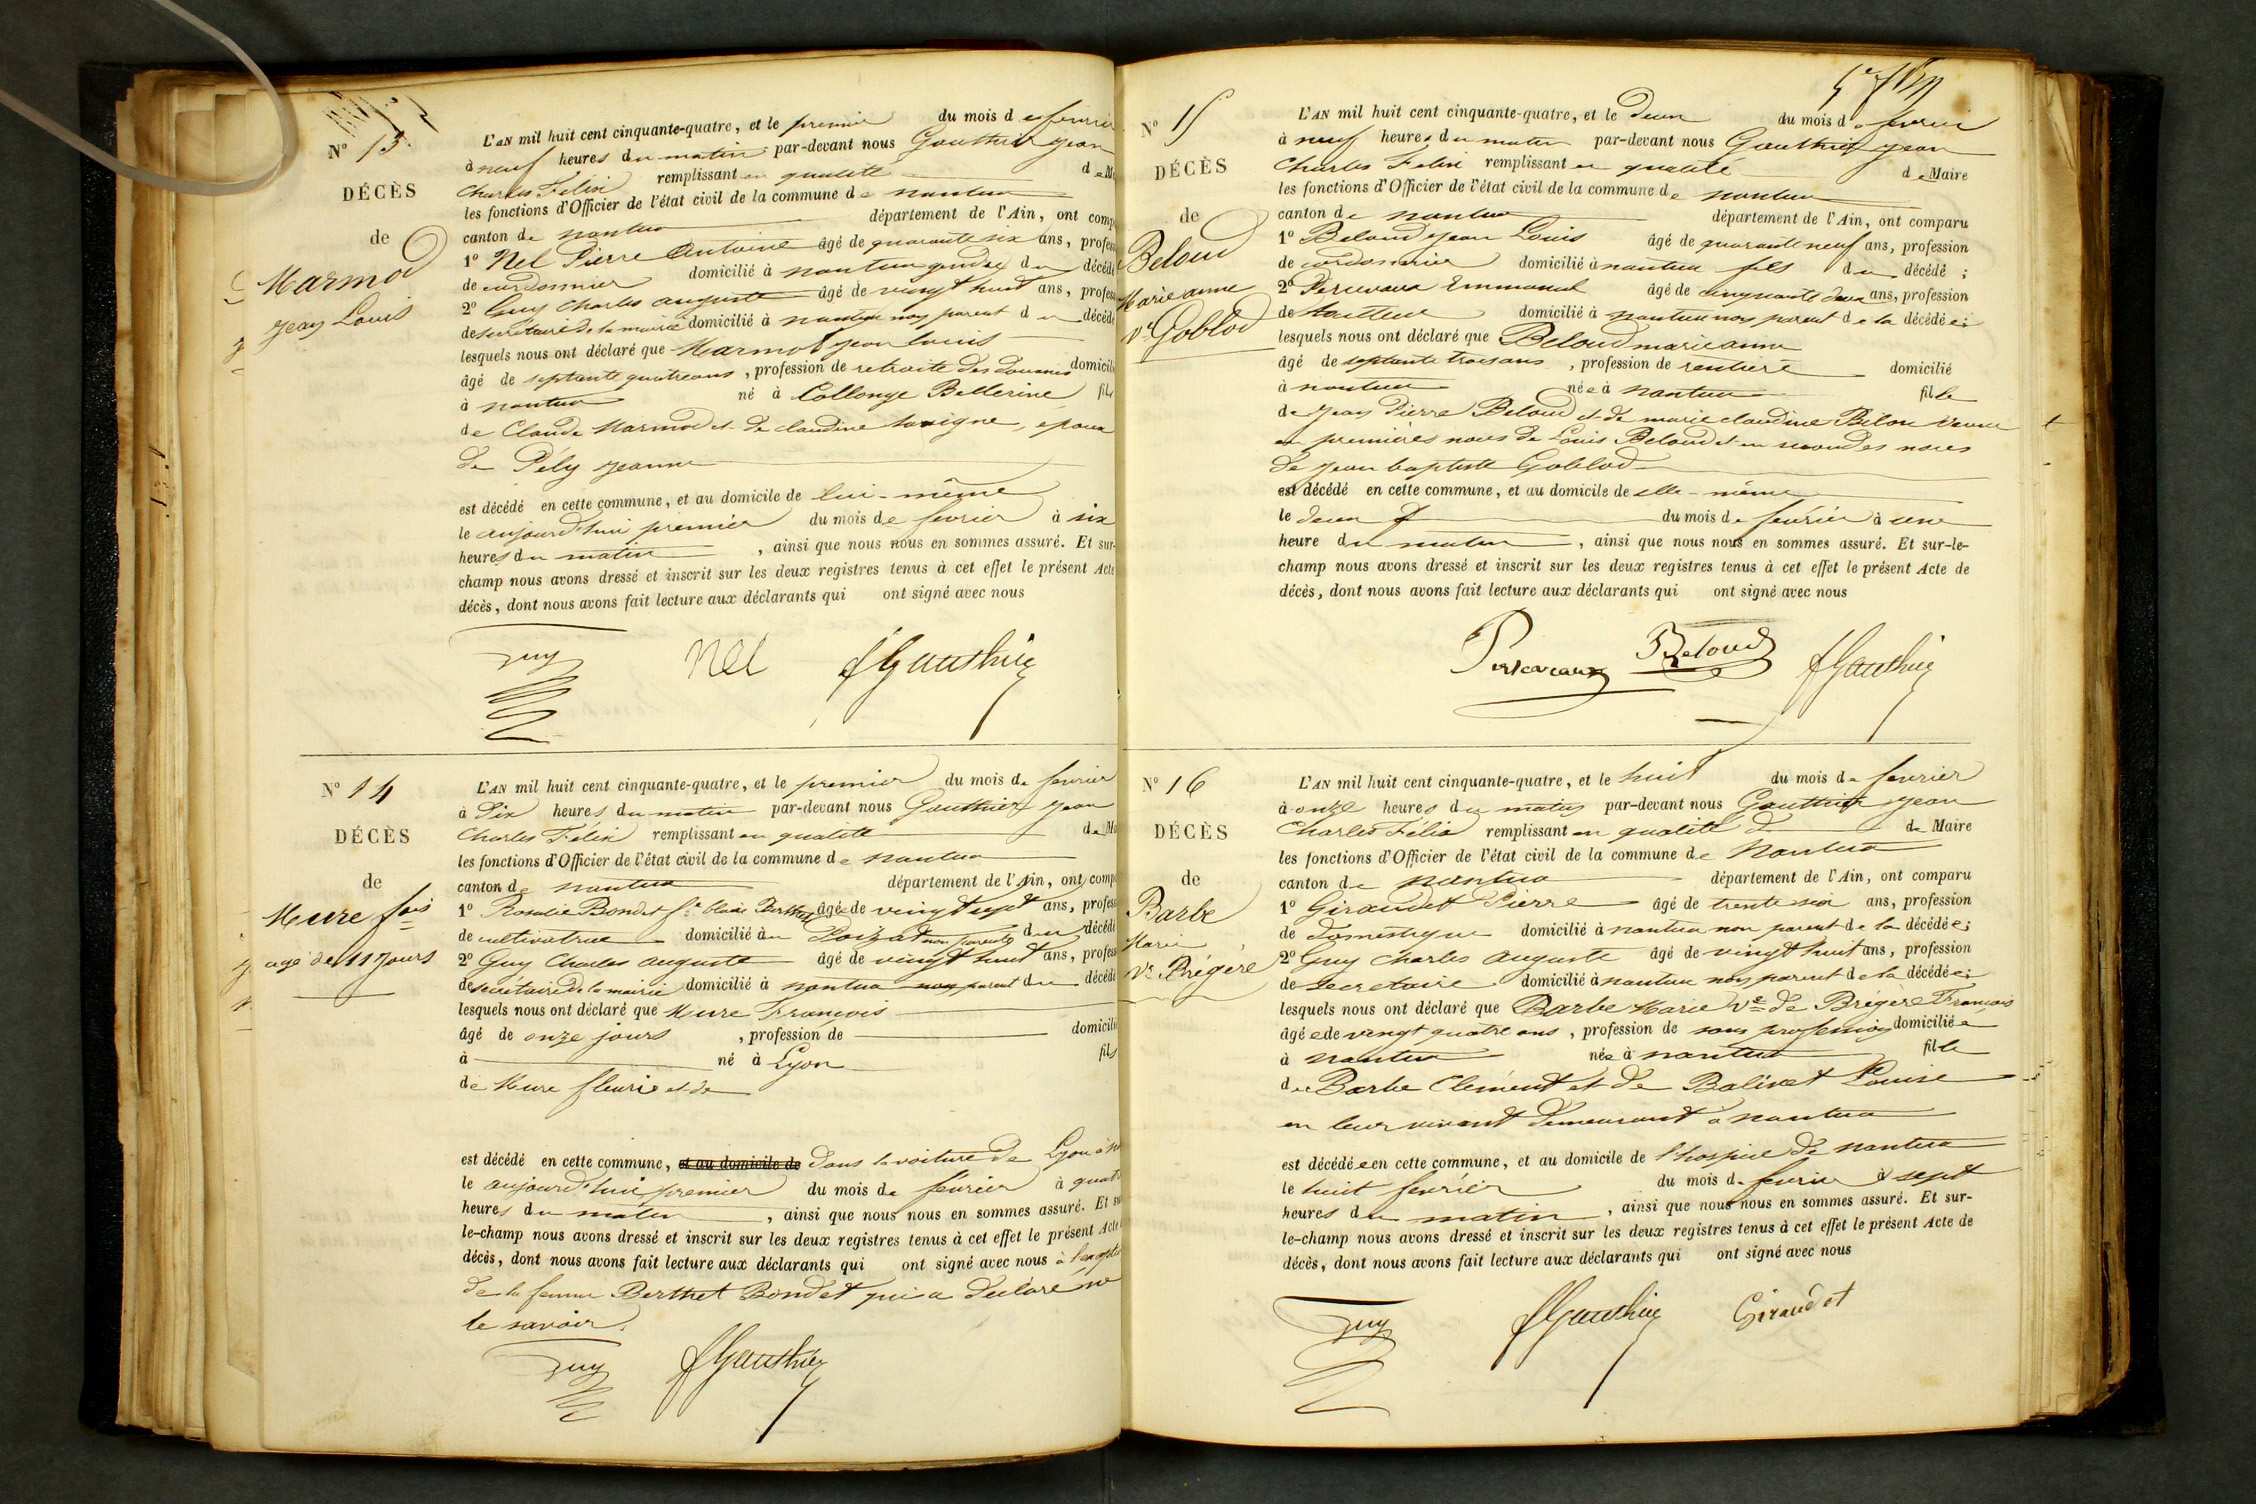 Nº 13
DÉCÈS
de
Marmod
Jean Louis
L'AN mil huit cent cinquante-quatre, et le premier du mois de fevrier
à neuf heures du matin par-devant nous Gauthier Jean
Charles Felix remplissant en qualité de M
les fonctions d'Officier de l'état civil de la commune de nantua
canton de nantua département de l'Ain, ont comp
1º Nel Pierre Antoine âgé de quarante six ans, profes
de cordonnier domicilié à nantua gendre du décédé
2º Guy Charles auguste âgé de vingt huit ans, profes
de secretaire de la mairie domicilié à nantua non parent du décédé
lesquels nous ont déclaré que Marmod Jean Louis
âgé de septante quatre ans, profession de retraite des douanes domicilié
à nantua né à Collonge Bellerine fils
de Claude Marmod et de claudine , epoux
de Pely Jeanne
est décédé en cette commune, et au domicile de lui-même
le aujourd'hui premier du mois de fevrier à six
heures du matin, ainsi que nous nous en sommes assuré. Et sur-
champ nous avons dressé et inscrit sur les deux registres tenus à cet effet le présent Acte
décès, dont nous avons fait lecture aux déclarants qui ont signé avec nous
Guy Nel fGauthier
Nº 14
DÉCÈS
de
Mure fois
agé de 11 jours
L'AN mil huit cent cinquante-quatre, et le premier du mois de fevrier
à Dix heures du matin par-devant nous Gauthier Jean
Charles Felix remplissant en qualité de M
les fonctions d'Officier de l'état civil de la commune de nantua
canton de nantua département de l'Ain, ont comp
1º Rosalie Bondet fe blaise Berthet âgé de vingt sept ans, profess
de cultivatrice domicilié à Poizat non parente du décédé
2º Guy Charles auguste âgé de vingt huit ans, profess
de secrétaire de la mairie domicilié à nantua non parent du décédé
lesquels nous ont déclaré que Mure François
âgé de onze jours, profession de domicilié
à né à Lyon fils
de Mure fleurie et de
est décédé en cette commune, et au domicile de dans la voiture de Lyon à
le aujourd'hui premier du mois de fevrier à quatre
heures du matin, ainsi que nous nous en sommes assuré. Et su
le-champ nous avons dressé et inscrit sur les deux registres tenus à cet effet le présent Acte
décès, dont nous avons fait lecture aux déclarants qui ont signé avec nous à l'except
de la femme Berthet Bondet qui a déclaré ne
le savoir.
Guy fGauthier
Nº 15
DÉCÈS
de
Beloud
Marie anne
ve Goblod
L'AN mil huit cent cinquante-quatre, et le Deux du mois de fevrier
à neuf heures du matin par-devant nous Gauthier Jean
Charles Felix remplissant en qualité de Maire
les fonctions d'Officier de l'état civil de la commune de nantua
canton de nantua département de l'Ain, ont comparu
1º Beloud Jean Louis âgé de quarante neuf ans, profession
de cordonnier domicilié à nantua fils du décédé;
2º Percevaux Emmanuel âgé de cinquante deux ans, profession
de domicilié à nantua non parent de la décédée;
lesquels nous ont déclaré que Beloud marie anne
âgé de septante trois ans, profession de rentière domicilié
à nantua née à nantua fille
de Jean Pierre Beloud et de marie claudine Bilon Veuve
en premières noces de Louis Beloud et en secondes noces
de Jean baptiste Goblod
est décédé en cette commune, et au domicile de elle-même
le deux du mois de fevrier à une
heure du matin, ainsi que nous nous en sommes assuré. Et sur-le-
champ nous avons dressé et inscrit sur les deux registres tenus à cet effet le présent Acte de
décès, dont nous avons fait lecture aux déclarants qui ont signé avec nous
Percevaux Beloud fGauthier
Nº 16
DÉCÈS
de
Barbe
Marie
Ve Brégère
L'AN mil huit cent cinquante-quatre, et le huit du mois de fevrier
à onze heures du matin par-devant nous Gauthier Jean
Charles Félix remplissant en qualité d de Maire
les fonctions d'Officier de l'état civil de la commune de Nantua
canton de nantua département de l'Ain, ont comparu
1º Giraudet Pierre âgé de trente six ans, profession
de domestique domicilié à nantua non parent de la décédée;
2º Guy Charles auguste âgé de vingt huit ans, profession
de secretaire domicilié à nantua non parent de la décédée;
lesquels nous ont déclaré que Barbe Marie Ve de Brégère François
âgée de vingt quatre ans, profession de sans profession domiciliée
à nantua née à nantua fille
de Barbe Clément et de Balivet Louise
en leur vivant demeurant à nantua
est décédée en cette commune, et au domicile de l'hospice de nantua
le huit fevrier du mois de fevrier à sept
heures du matin, ainsi que nous nous en sommes assuré. Et sur-
le-champ nous avons dressé et inscrit sur les deux registres tenus à cet effet le présent Acte de
décès, dont nous avons fait lecture aux déclarants qui ont signé avec nous
Guy fGauthier Giraudet